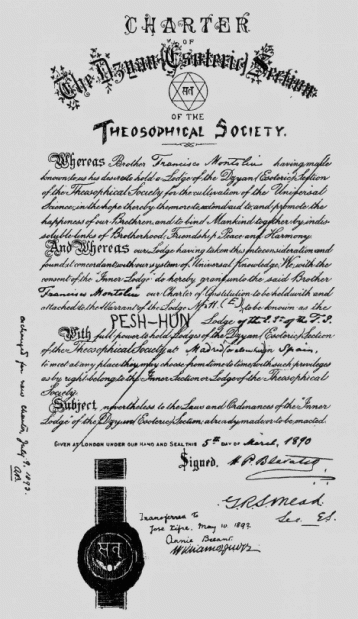 CHARTER
OF
The Dzyan (Esoteric) Section
OF THE
THEOSOPHICAL SOCIETY.
Whereas Brother Francisco Montoliu having made
known to us his desire to hold a Lodge of the Dzyan (Esoteric) Section
of the Theosophical Society for the cultivation of the Universal
Science, in the hope thereby the more to extend aid to, and promote the
happiness of our Brethren, and to bind Mankind together by indis-
soluble links of Brotherhood, Friendship, Peace and Harmony.
And Whereas our Lodge having taken this into consideration and
found it concordant with our system of Universal Knowledge, We, with the
consent of the "Inner Lodge" do hereby grant unto the said Brother
Francisco Montoliu our Charter of Constitution to be held with and
attached to the Warrant of the Lodge (E) to be known as the
PESH-HUN Lodge of the E.S. of the T.S.
With full power to hold Lodges of the Dzyan (Esoteric) Section
of the Theosophical Society at Madrid Spain,
to meet at any place they may choose from time to time, with such privileges
as by right belong to the Inner Section or Lodge of the Theosophical
Society.
Subject, nevertheless to the Law and Ordinances of the "Inner
Lodge" of the Dzyan (Esoteric) Section already made or to be enacted.
GIVEN AT LONDON UNDER OUR HAND AND SEAL THIS 5th DAY OF March, 1890
Signed. H. P. Blavatsky
G.R.S. Mead
Sec. E.S.
Transferred to
Jose Xifre, May 10. 1893.
Annie Besant
William Q. Judge
exchanged for new charter, July 9. 1893.
AB